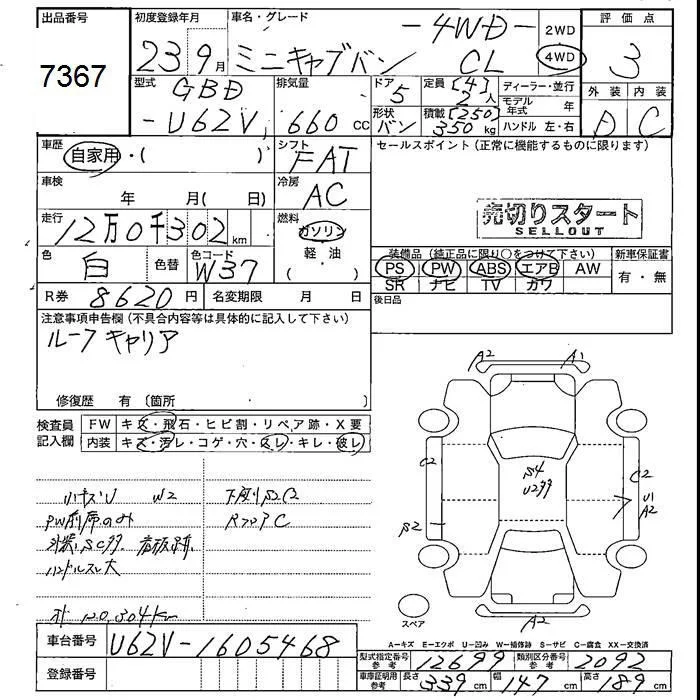 出品番号
7367
初度登録年月
23 9月
車名・グレード
ミニキャブバン
-4WD-
CL
2WD
4WD
評価点
3
外装 内装
D C
型式
GBD
-U62V
排気量
660 cc
ドア
5
形状
バン
定員 [4]
2人
積載 [250]
350 kg
ディーラー・並行
モデル年式 年
ハンドル 左・右
車歴
自家用・( )
シフト
FAT
セールスポイント(正常に機能するものに限ります)
車検 年 月( 日)
冷房
AC
売切りスタート
SELLOUT
走行
12万0千302 km
燃料
ガソリン
軽・油
・( )
色
白
色替
色コード
W37
装備品(純正品に限り○をつけて下さい)
新車保証書
PS PW ABS エアB AW
SR ナビ TV カワ
有・無
R券 8620円
名変期限 月 日
後日品
注意事項申告欄(不具合内容等は具体的に記入して下さい)
ルーフキャリア
修復歴 有 〔箇所 〕
検査員
記入欄
FW キズ・飛石・ヒビ割・リペア跡・X要
内装 キズ・汚レ・コゲ・穴・スレ・キレ・破レ
小キズU W2
PW前席のみ
外装SC多 看板跡
ハンドルスレ大
下廻りS2C2
RフロアC
才 120,304km
A2 A1
C2
S2
S4
U2多
C2
U1
A2
A2
スペア
A-キズ E-エクボ U-凹み W-補修跡 S-サビ C-腐食 XX-交換済
車台番号 U62V-1605468
登録番号
型式指定番号
参考
12699
類別区分番号
参考
2092
車庫証明用
参考
長さ 339 cm 幅 147 cm 高さ 189 cm